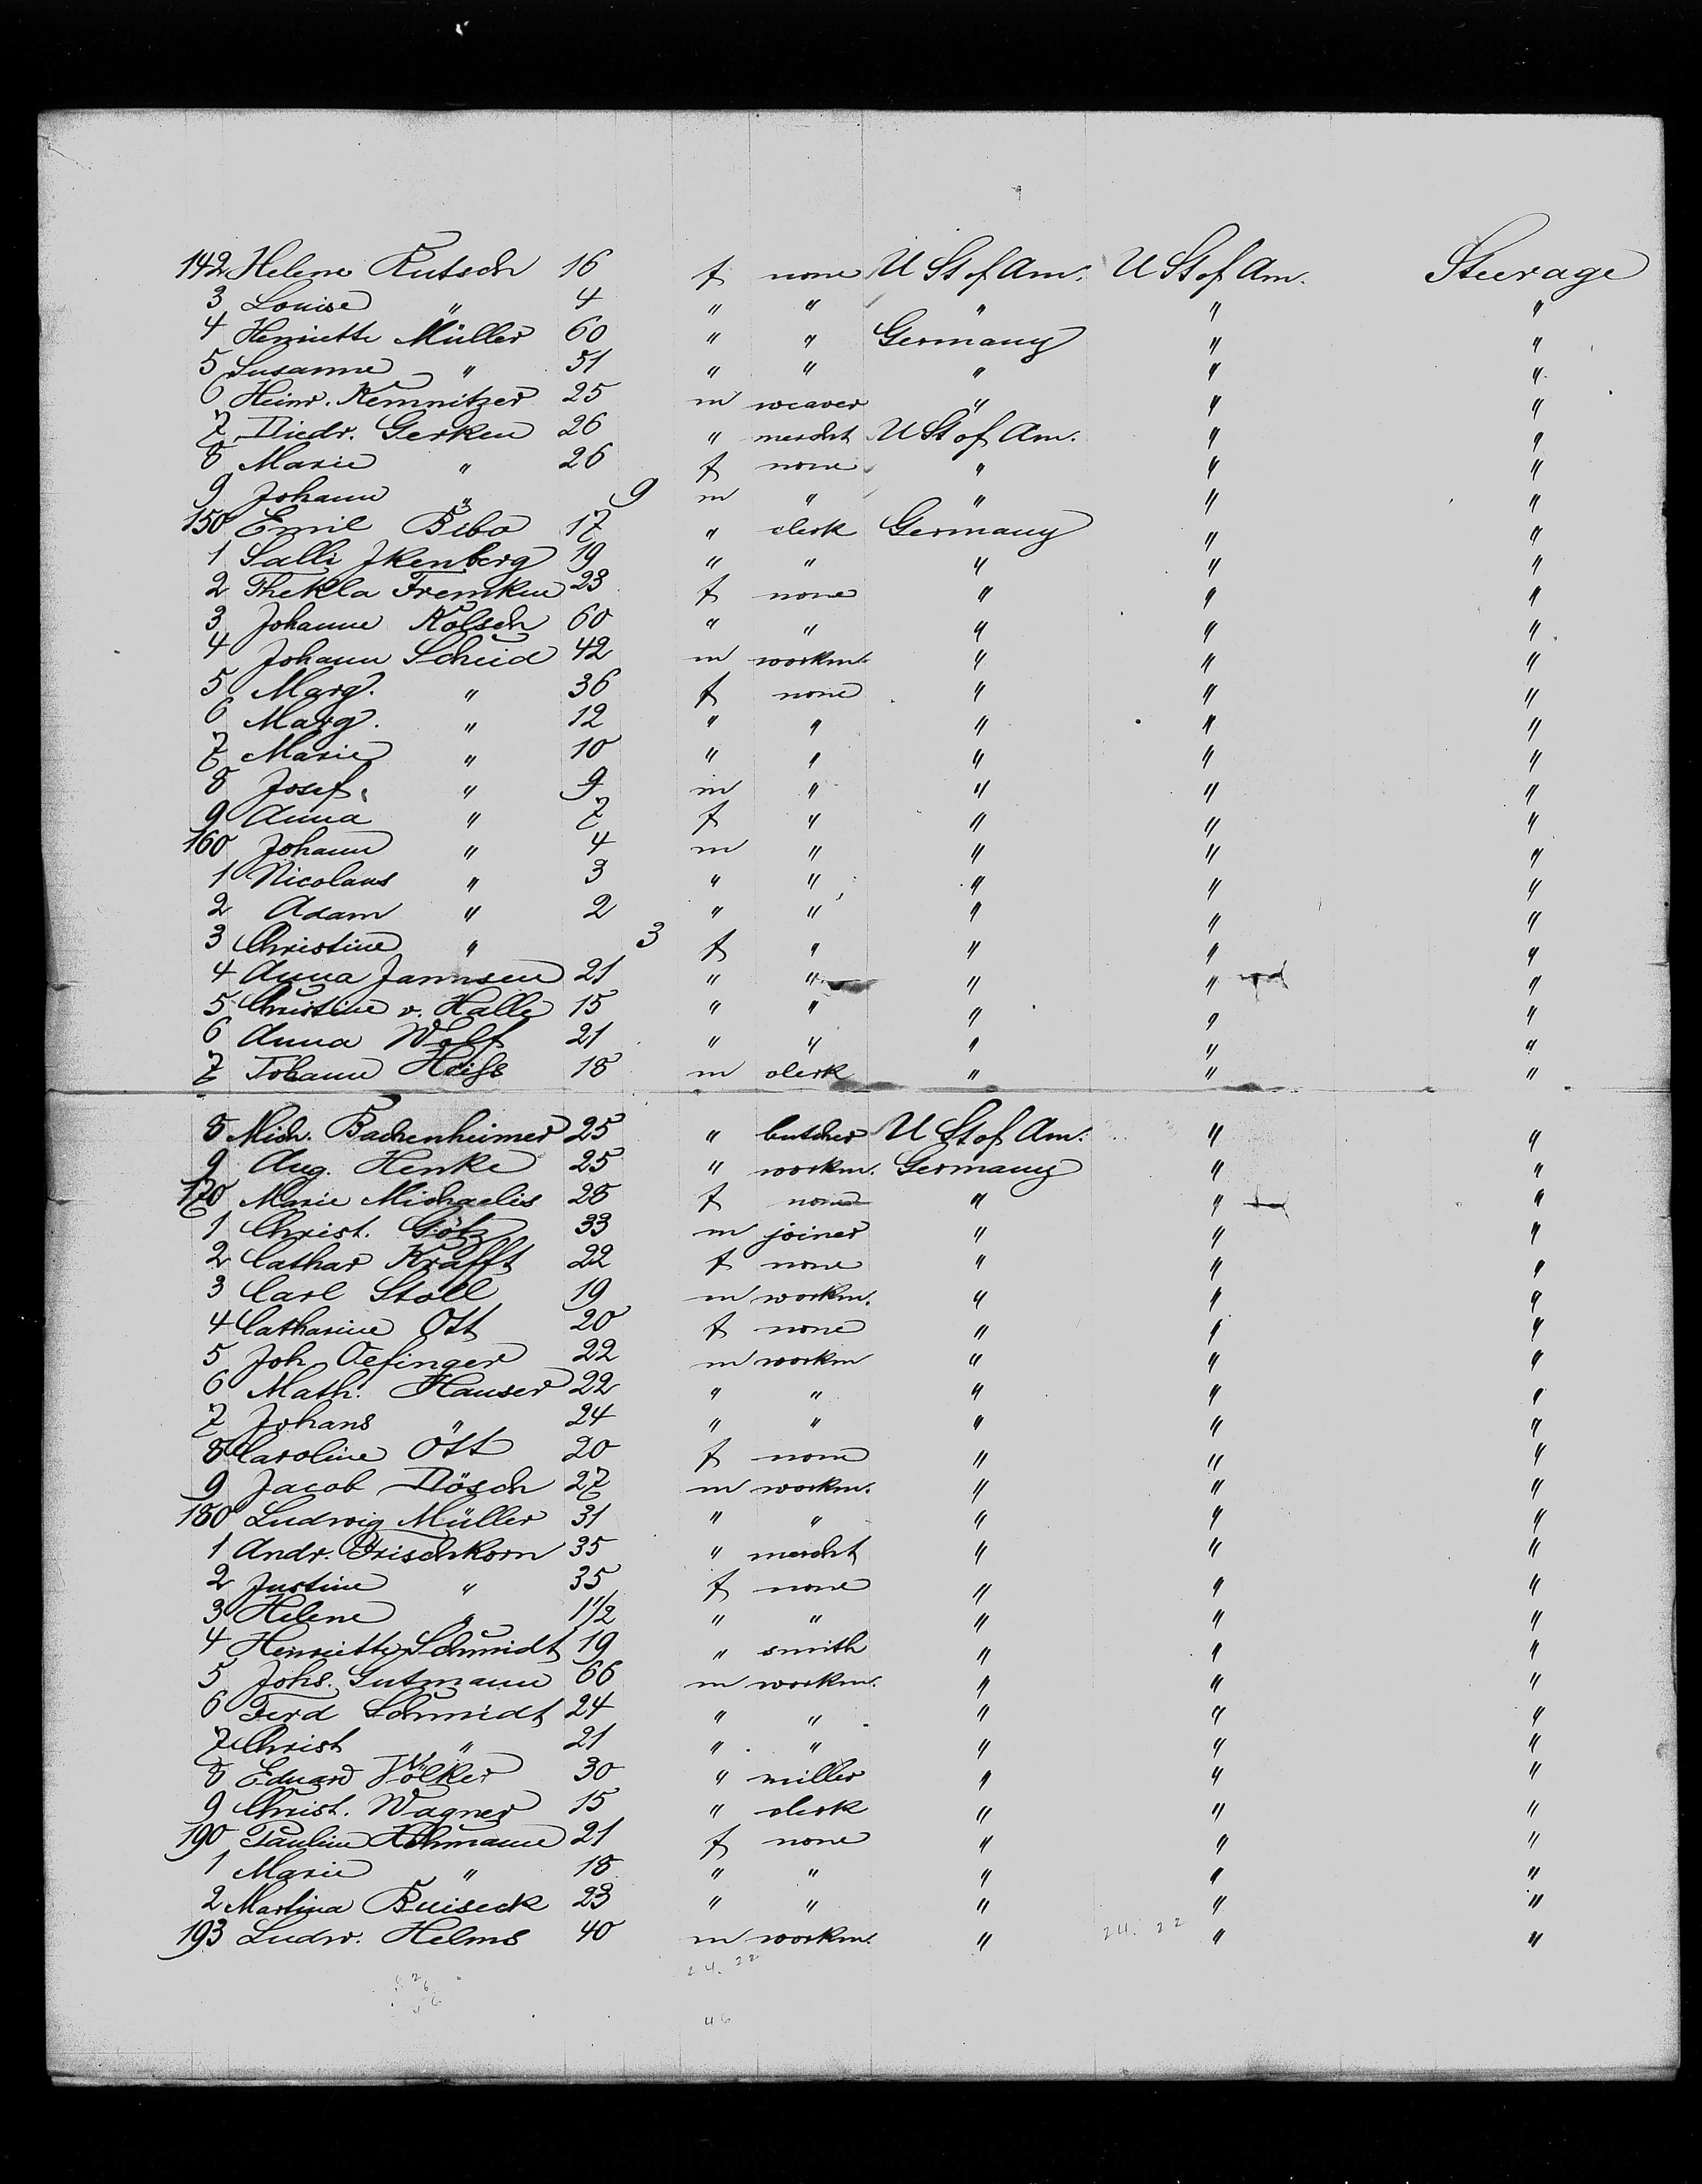 142 Helene Rutsch 16 f none U St of Am. U St of Am. Steerage
3 Louise " 4 " " " " "
4 Henriette Müller 60 " " Germany " "
5 Susanne " 51 " " " " "
6 Heinr. Kemnitzer 25 m weaver " " "
7 Diedr. Gerken 26 " mercht U St of Am. " "
8 Marie " 26 f none " " "
9 Johann " 9 m " " " "
150 Emil Bibo 17 " clerk Germany " "
1 Salli Ikenberg 19 " " " " "
2 Thekla Fremken 23 f none " " "
3 Johanne Kölsch 60 " " " " "
4 Johann Scheid 42 m workm. " " "
5 Marg. " 36 f none " " "
6 Marg. " 12 " " " " "
7 Marie " 10 " " " " "
8 Josef " 9 m " " " "
9 Anna " 7 f " " " "
160 Johann " 4 m " " " "
1 Nicolaus " 3 " " " " "
2 Adam " 2 " " " " "
3 Christine " 3 f " " " "
4 Anna Jannsen 21 " " " " "
5 Christine v. Halle 15 " " " " "
6 Anna Wolf 21 " " " " "
7 Johann Heiss 18 m clerk " " "
8 Mich. Bachenheimer 25 " butcher U St of Am. " "
9 Aug. Henke 25 " workm. Germany " "
170 Marie Michaelis 28 f none " " "
1 Christ. Götz 33 m joiner " " "
2 Cathar Krafft 22 f none " " "
3 Carl Stoll 19 m workm. " " "
4 Catharine Ott 20 f none " " "
5 Joh. Oefinger 22 m workm " " "
6 Math. Hauser 22 " " " " "
7 Johans " 24 " " " " "
8 Caroline Ott 20 f none " " "
9 Jacob Dösch 27 m workm. " " "
180 Ludwig Müller 31 " " " " "
1 Andr. Frischkorn 35 " mercht " " "
2 Justine " 35 f none " " "
3 Helene " 1 1/2 " " " " "
4 Henriette Schmidt 19 " smith " " "
5 Johs. Gutmann 66 m workm. " " "
6 Ferd Schmidt 24 " " " " "
7 Christ " 21 " " " " "
8 Eduard Völker 30 " miller " " "
9 Christ. Wagner 15 " clerk " " "
190 Pauline Hohmann 21 f none " " "
1 Marie " 18 " " " " "
2 Martina Buiseck 23 " " " " "
193 Ludw. Helms 40 m workm. " 24. 22 " "
24. 22
46